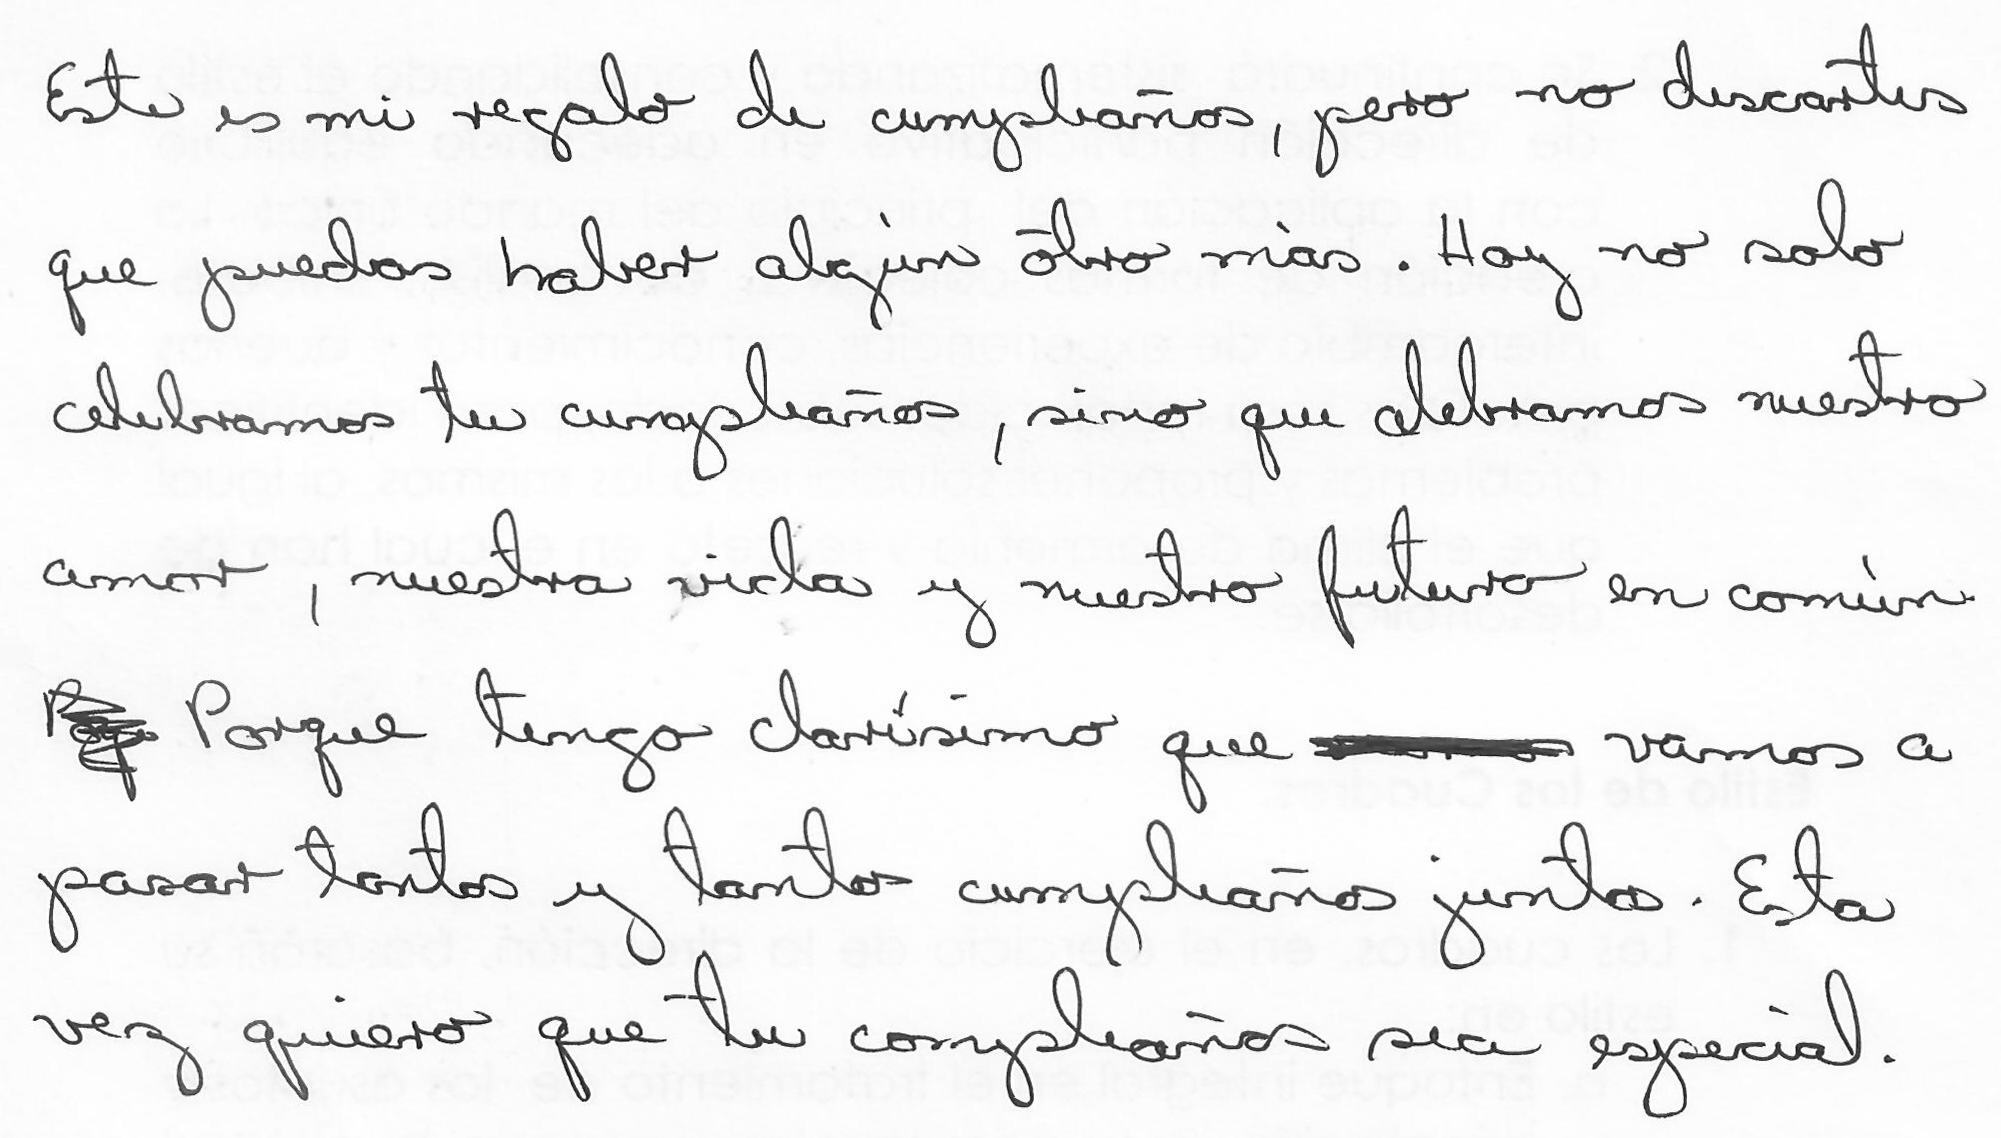 Este es mi regalo de cumpleaños, pero no descartes
que puedas haber algún otro más. Hoy no solo
celebramos tu cumpleaños, sino que celebramos nuestro
amor, nuestra vida y nuestro futuro en común.
Porque tengo clarísimo que vamos a
pasar tantos y tantos cumpleaños juntos. Esta
vez quiero que tu compleaños sea especial.